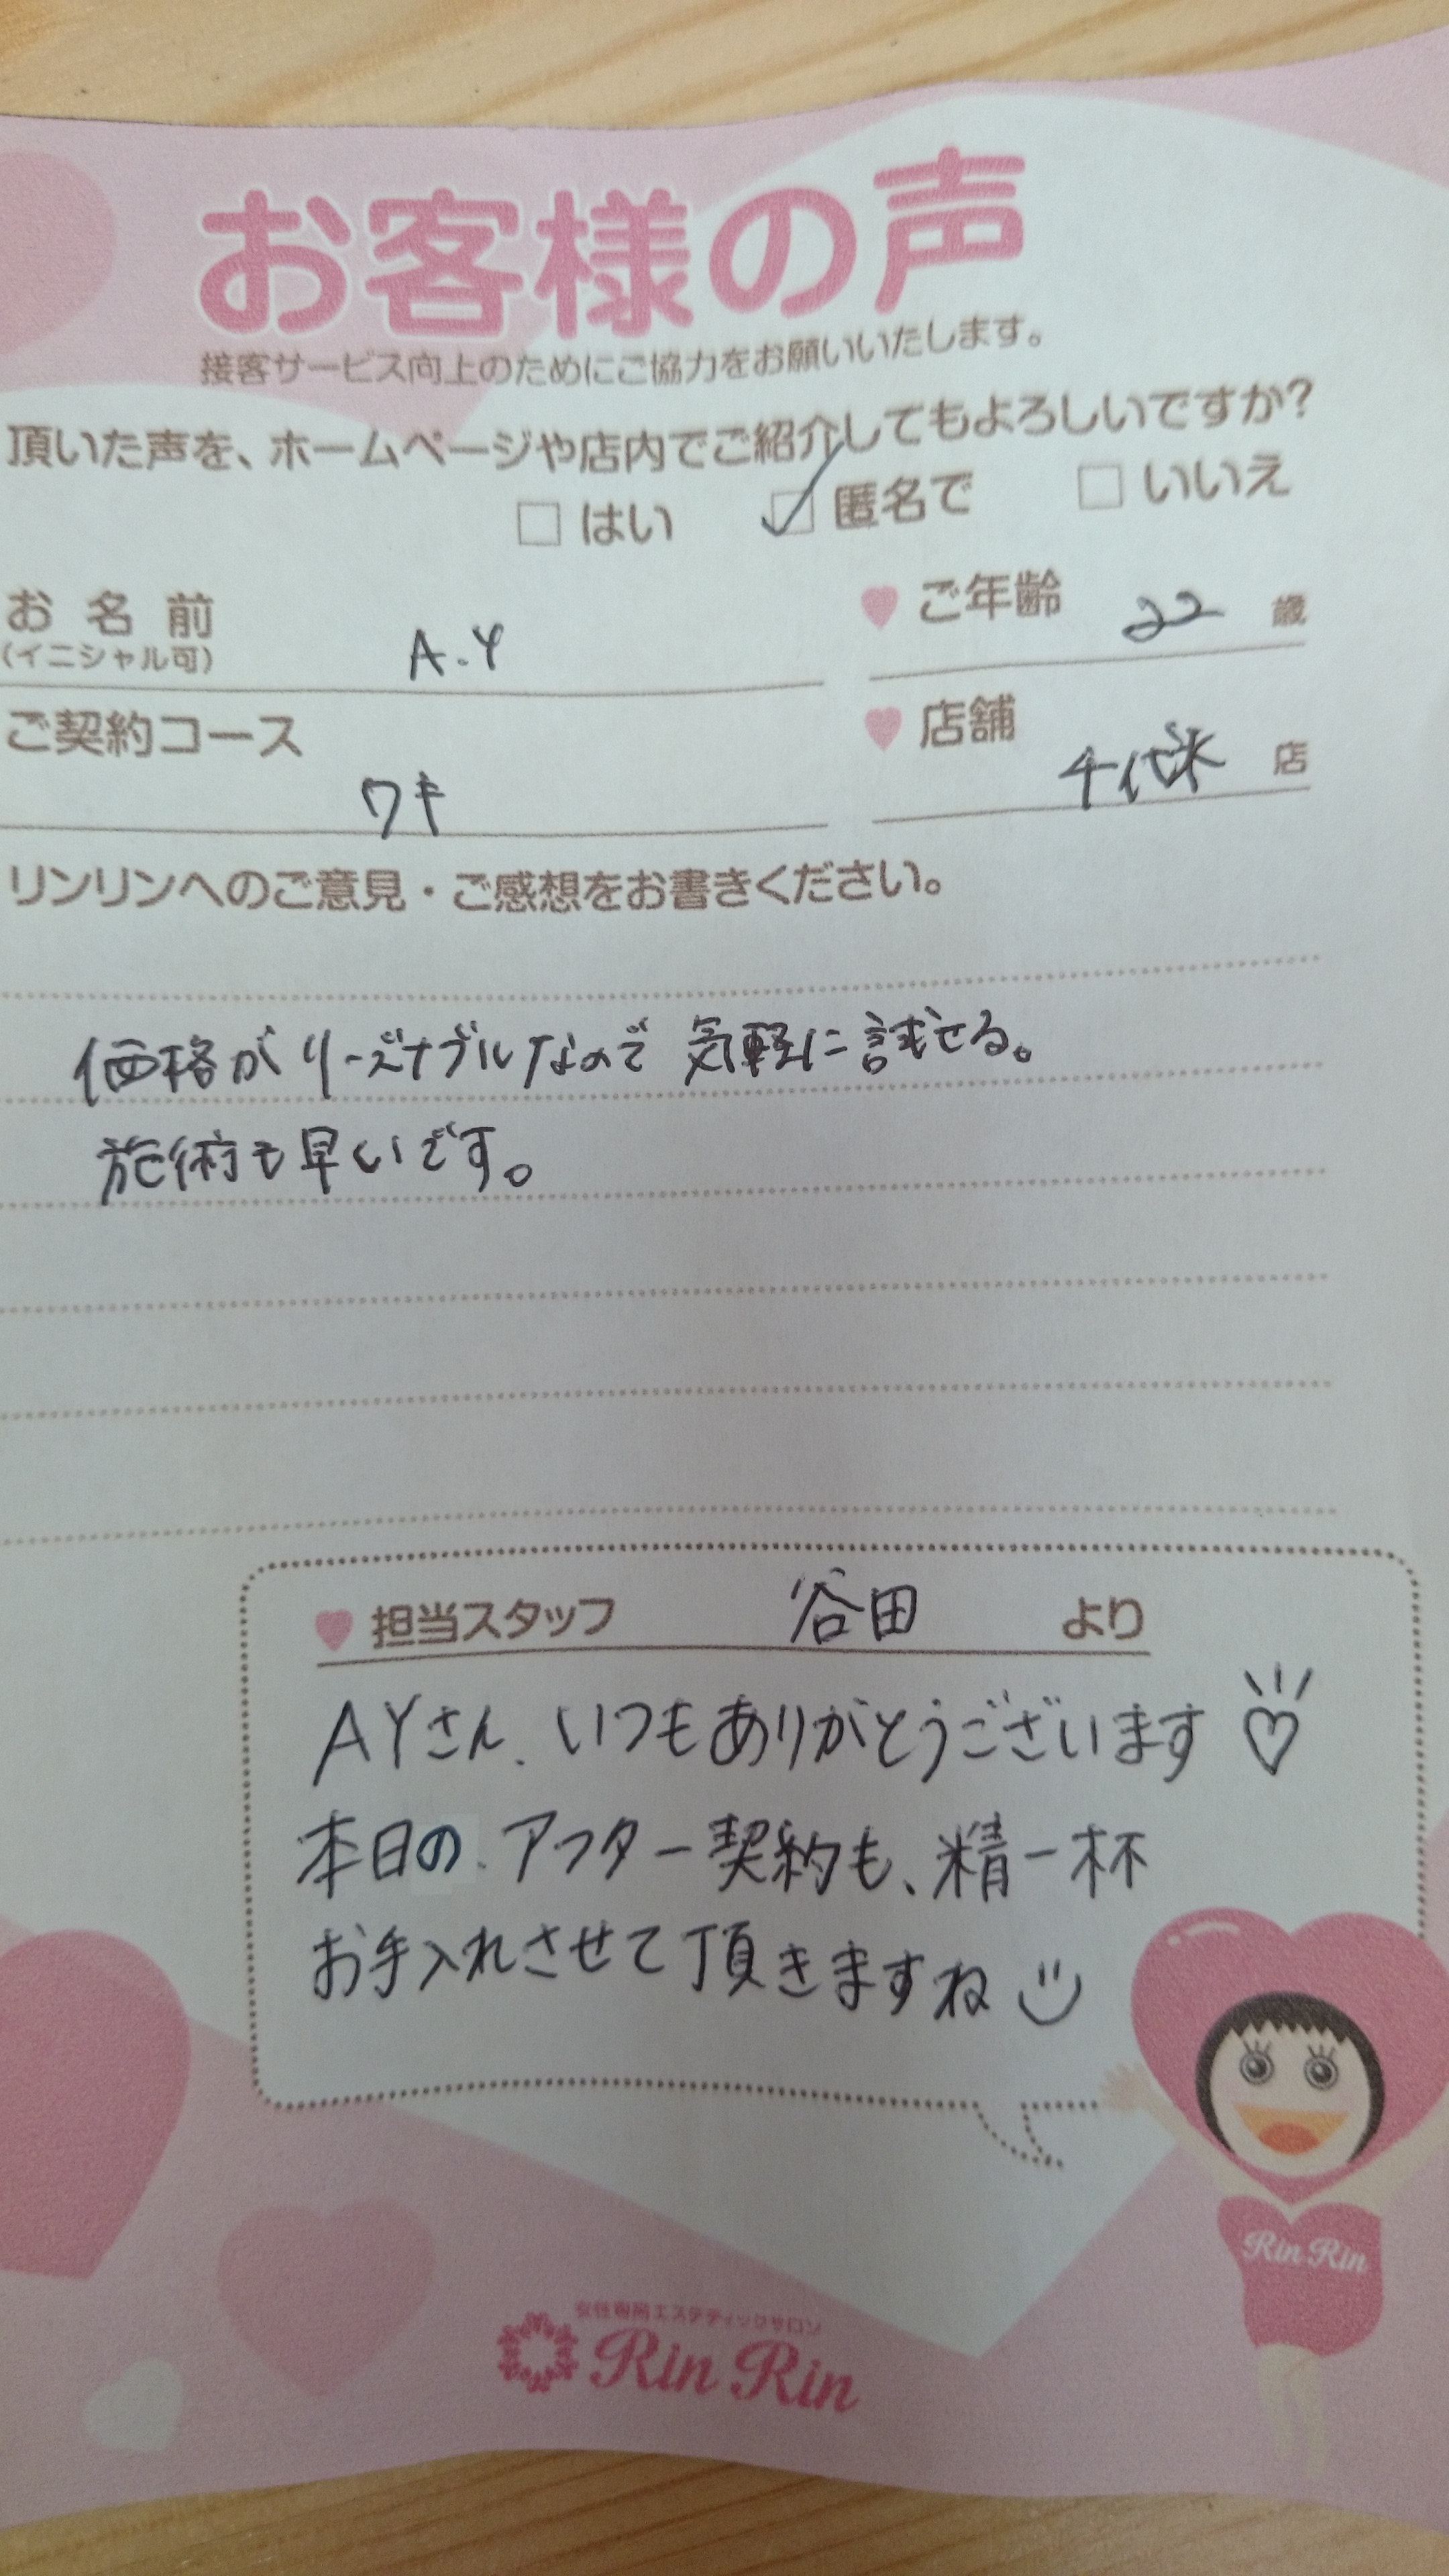 お客様の声
接客サービス向上のためにご協力をお願いいたします。
頂いた声を、ホームページや店内でご紹介してもよろしいですか?
はい 匿名で いいえ
お名前 A.Y ご年齢 22 歳
(イニシャル可)
ご契約コース 店舗
ワキ 千代 店
リンリンへのご意見・ご感想をお書きください。
価格がリーズナブルなので 気軽に試せる。
施術も早いです。
担当スタッフ 谷田 より
AYさん、いつもありがとうございます♡
本日の、アフター契約も、精一杯
お手入れさせて頂きますね
Rin Rin
女性専用エステティックサロン
Rin Rin